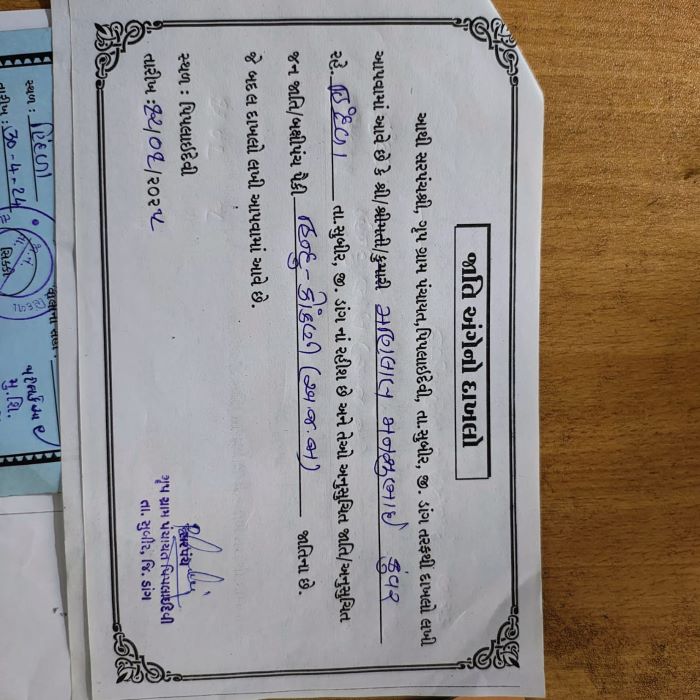 જાતિ અંગેનો દાખલો
આથી સરપંચશ્રી, ગૃપ ગ્રામ પંચાયત,પિપલાઇદેવી, તા.સુબીર, જી. ડાંગ તરફથી દાખલો લખી
આપવામાં આવે છે કે શ્રી/શ્રીમતી/કુમારી મણિલાલ મનજુભાઈ કુંવર
રહે. હિંદળા તા.સુબીર, જી. ડાંગ નાં રહીશ છે અને તેઓ અનુસુચિત જાતિ/અનુસુચિત
જન જાતિ/બક્ષીપંચ પૈકી હિન્દુ - કોંકણી (અ.જ.જા) જાતિના છે.
જે બદલ દાખલો લખી આપવામાં આવે છે.
સ્થળ : પિપલાઇદેવી
તારીખ :
સરપંચ
ગૃપ ગ્રામ પંચાયત પિપલાઇદેવી
તા. સુબીર, જિ. ડાંગ
સ્થળ : હિંદળા
તારીખ : 30-4-24